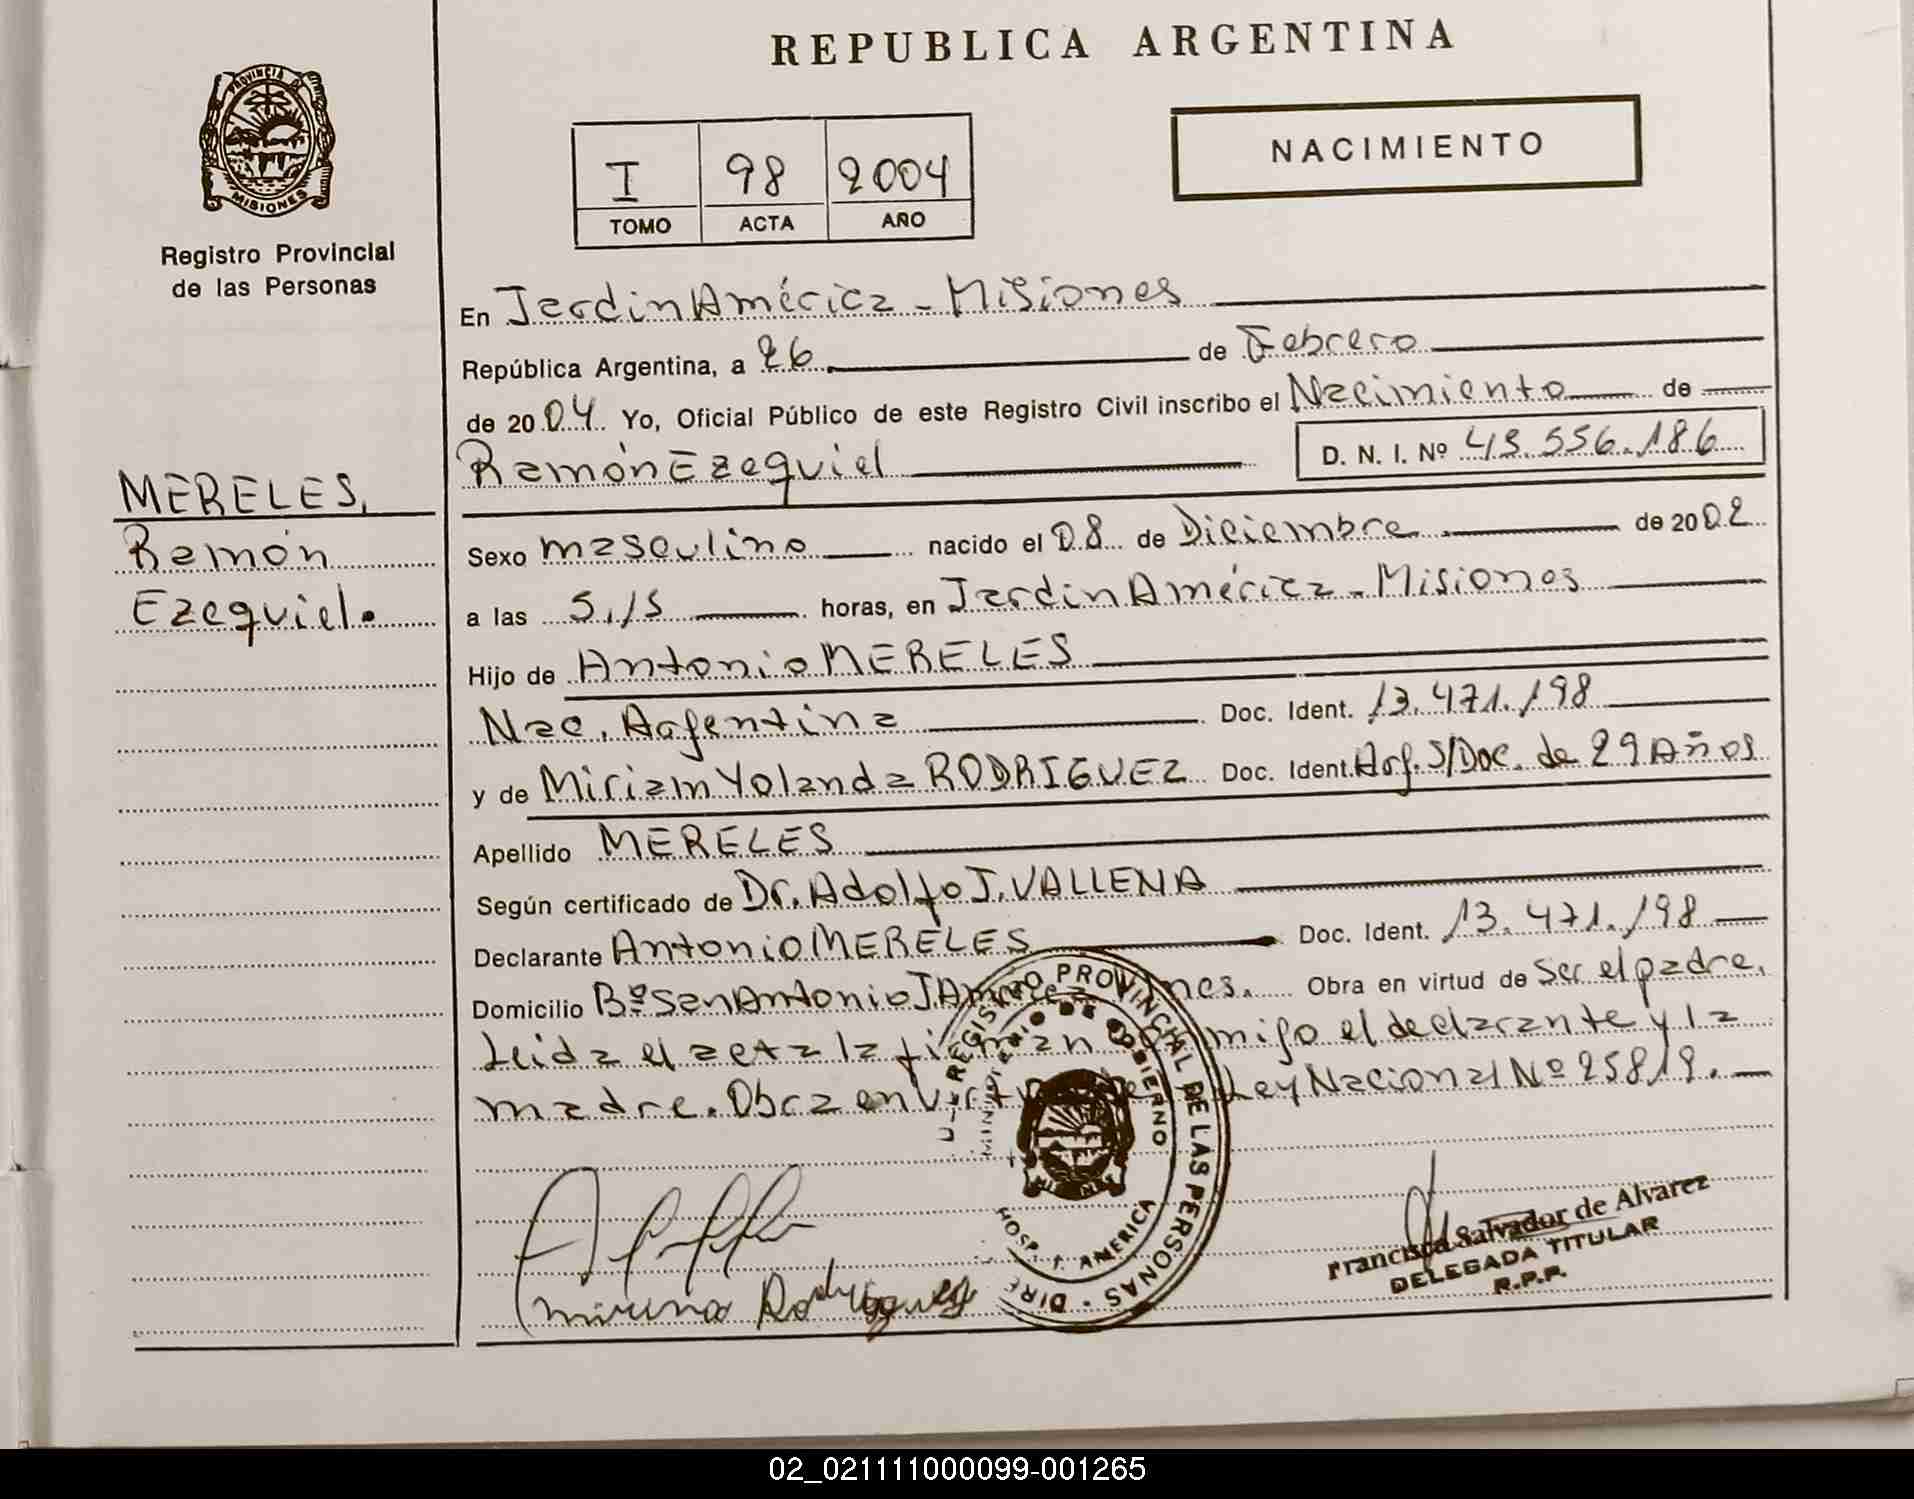 REPUBLICA ARGENTINA
PROVINCIA DE
MISIONES
Registro Provincial
de las Personas
I 98 2004
TOMO ACTA AÑO
NACIMIENTO
En Jardin América - Misiones
República Argentina, a 26 de Febrero
de 2004 Yo, Oficial Público de este Registro Civil inscribo el Nacimiento de
Ramón Ezequiel D. N. I. Nº 43.556.186
MERELES,
Ramón
Ezequiel.
Sexo masculino nacido el 08 de Diciembre de 2002
a las 5.15 horas, en Jardin América - Misiones
Hijo de Antonio MERELES
Nac. Argentina Doc. Ident. 13.471.198
y de Miriam Yolanda RODRIGUEZ Doc. Ident. Arg. S/Doc. de 29 Años
Apellido MERELES
Según certificado de Dr. Adolfo J. VALLENA
Declarante Antonio MERELES Doc. Ident. 13.471.198
Domicilio Bº San Antonio J. América Mnes. Obra en virtud de Ser el padre.
Leida el acta la firman conmigo el declarante y la
madre. Obra en virtud de Ley Nacional Nº 25819.
REGISTRO PROVINCIAL DE LAS PERSONAS - DIRE
MINISTERIO DE GOBIERNO
HOSP. J. AMERICA
Rodriguez
Francisca Salvador de Alvarez
DELEGADA TITULAR
R.P.P.
02_021111000099-001265